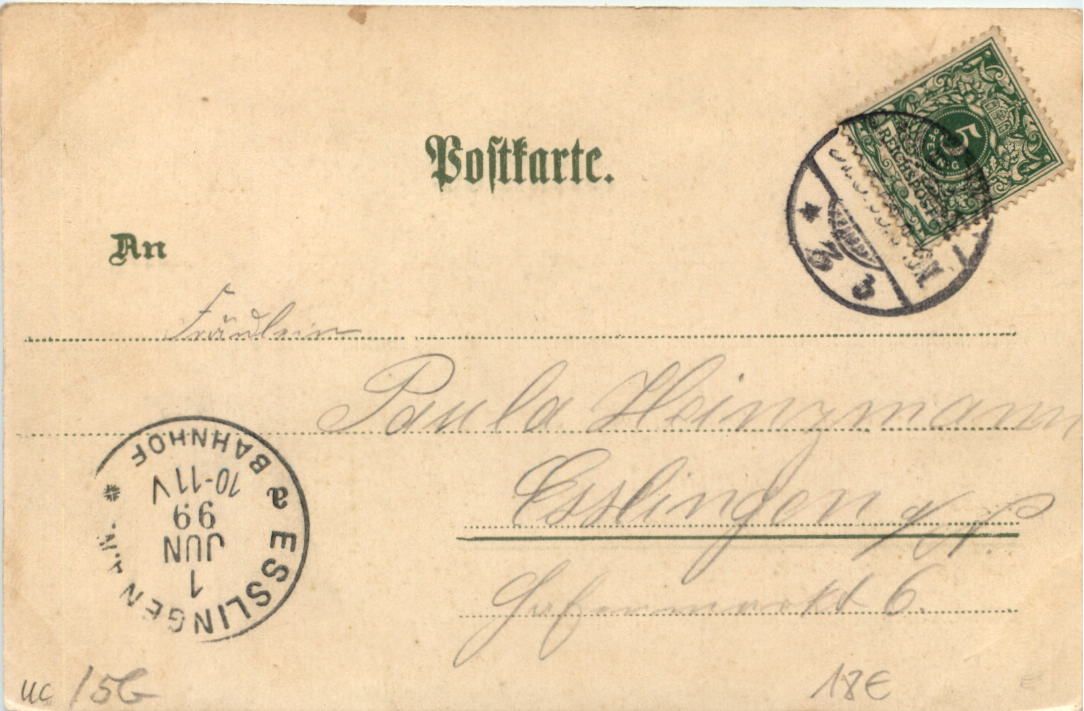 Postkarte.
An
5
PFENNIG
REICHSPOST
Fräulein
Paula Heinzmann
Esslingen a/N
Hafenmarkt 6.
ESSLINGEN a.N.
1
JUN
99
10-11V
BAHNHOF
uc
18€